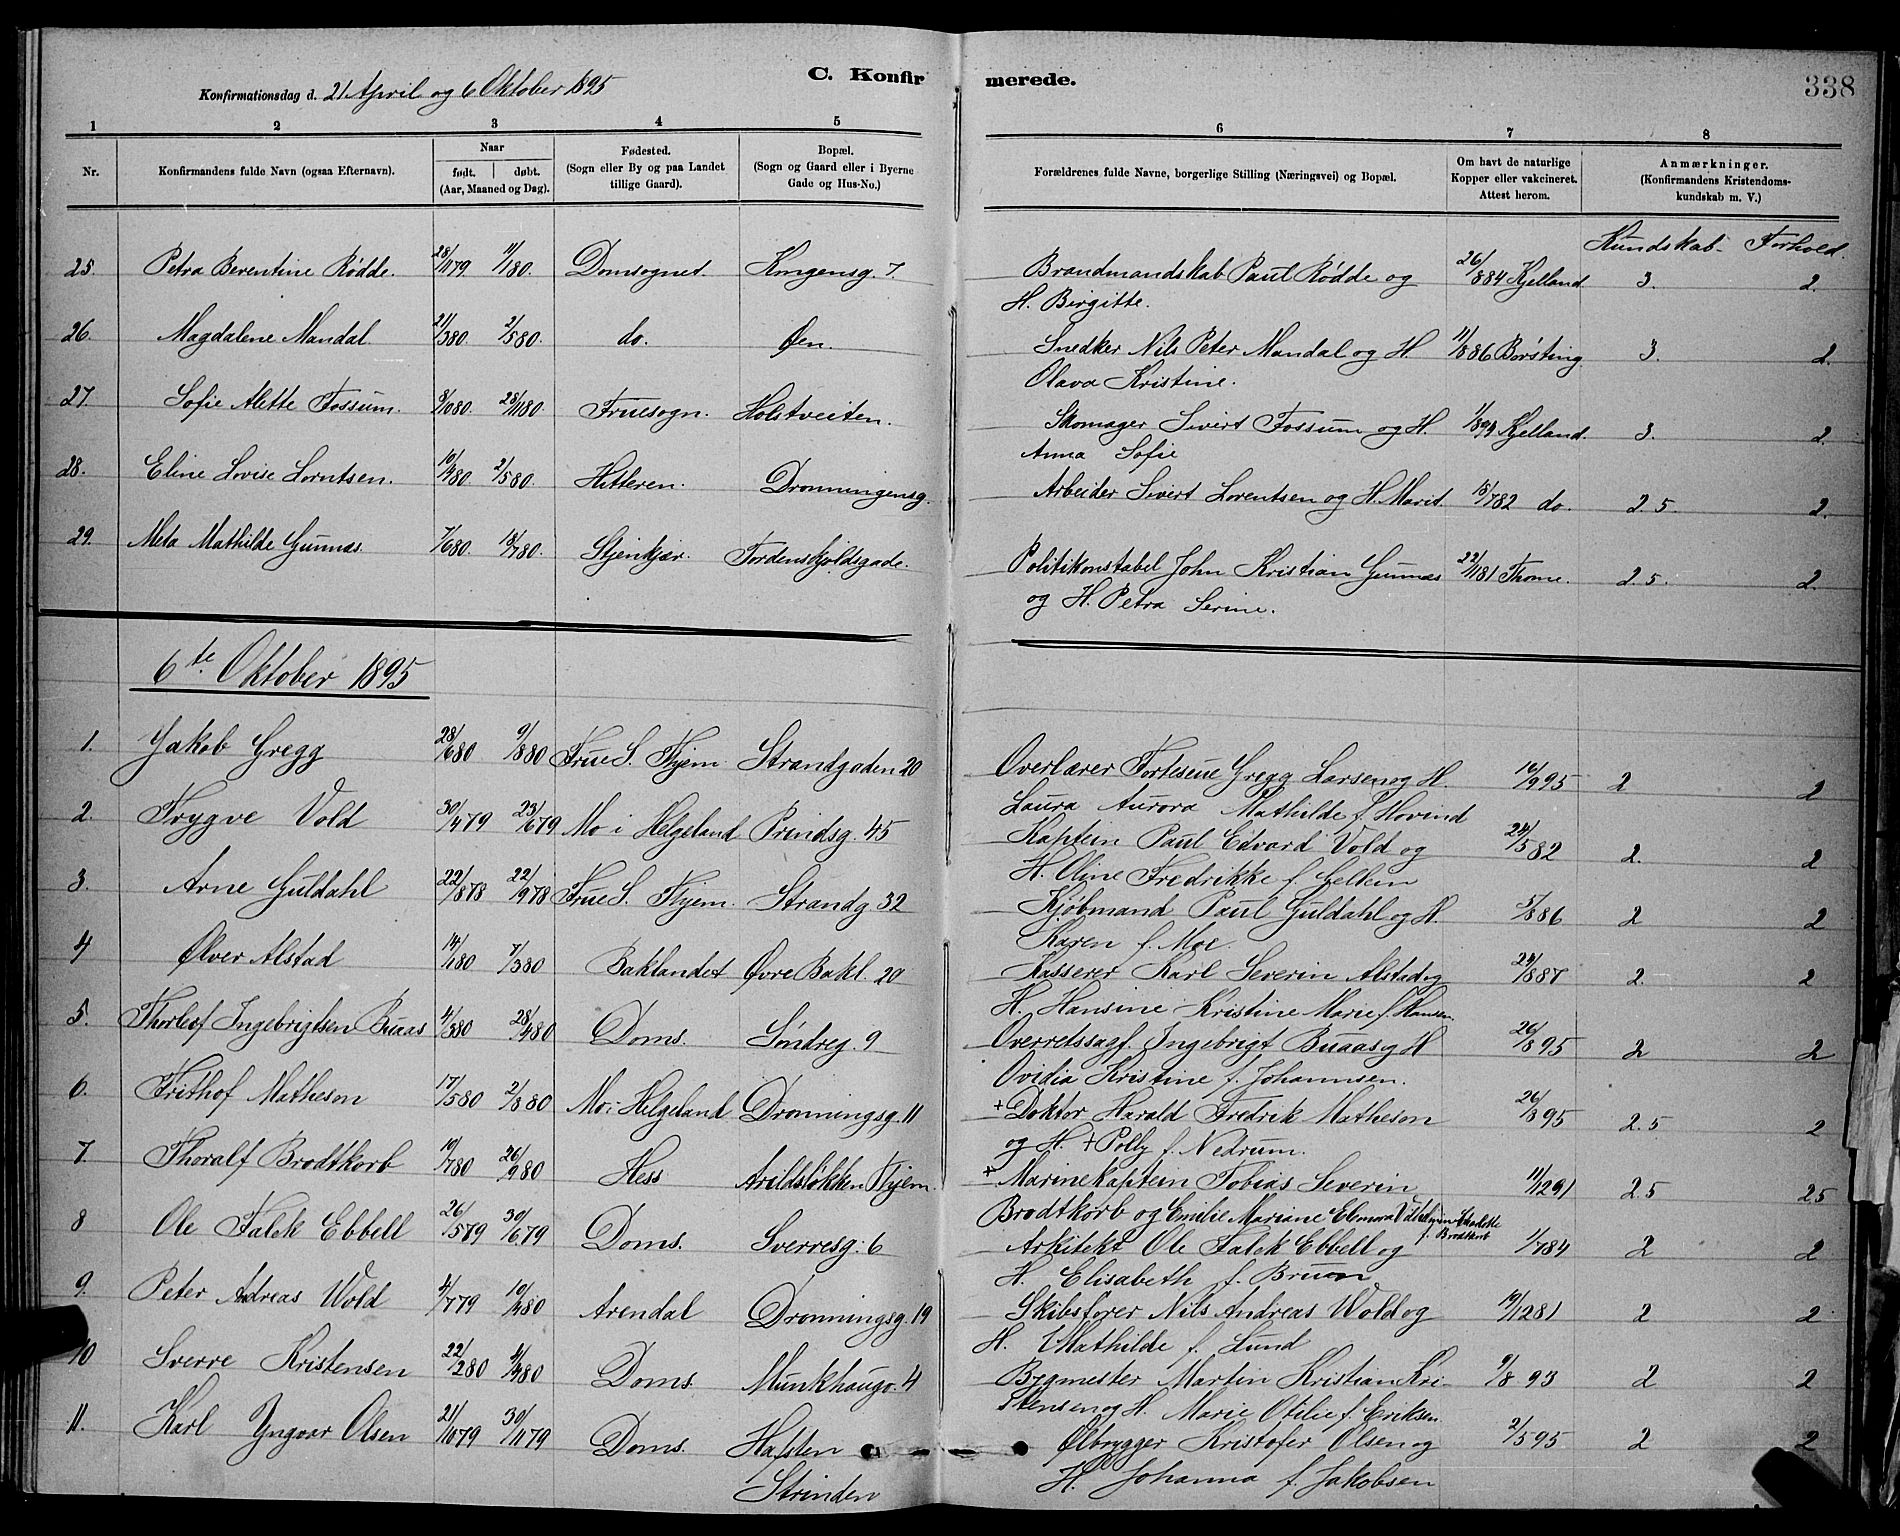 C. Konfirmerede. 338
Konfirmationsdag d. 21 April og 6 Oktober 1895
1 2 3 4 5 6 7 8
Nr. Konfirmandens fulde Navn (ogsaa Efternavn). Naar født. døbt. (Aar, Maaned og Dag). Fødested. (Sogn eller By og paa Landet tillige Gaard). Bopæl. (Sogn og Gaard eller i Byerne Gade og Hus-No.) Forældrenes fulde Navne, borgerlige Stilling (Næringsvei) og Bopæl. Om havt de naturlige Kopper eller vakcineret. Attest herom. Anmærkninger. (Konfirmandens Kristendomskundskab m. V.)
Kundskab. Forhold.
25. Petra Berentine Rödde. 28/1179 11/180. Domsognet. Kongensg. 7. Brandmandskab Paul Rödde og 26/884 Kjelland 3. 2.
H. Birgitte.
26. Magdalene Mandal 21/380. 2/580. do. Øen. Snedker Nils Peter Mandal og H. 11/886 Borsting 3. 2.
Olava Kristine.
27. Sofie Alette Fossum. 8/1080. 28/1180. Fruesogn. Holstveiten. Skomager Sivert Fossum og H. 1/894 Kjelland. 3. 2.
Anna Sofie
28. Eline Lovise Lorntsen. 10/480. 2/580. Hitteren. Dronningensg. Arbeider Sivert Lorentsen og H. Marit. 18/782 do. 2.5. 2.
29. Meta Mathilde Gunnes. 7/680. 18/780. Stjenkjær. Tordenskjoldsgade. Politikonstabel John Kristian Gunnes 22/181 Thome. 2.5. 2.
og H. Petra Serine.
6te Oktober 1895
1. Jakob Gregg 28/680 9/880 Frue S. Thjem Strandgaden 20 Overlærer Fortescue Gregg Larsen og H. 16/995 2 2
Laura Aurora Mathilde f. Hovind
2. Trygve Vold 30/479 23/679 Mo i Helgeland Prindsg. 45 Kaptein Paul Edvard Vold og 24/582 2. 2
H. Oline Fredrikke f. Gellein
3. Arne Guldahl 22/878 22/978 Frue S. Thjem. Strandg 32 Kjøbmand Paul Guldahl og H. 5/886 2 2
Karen f. Moe.
4 Ølver Alstad 14/180 7/380 Baklandet Øvre Bakl. 20 Kasserer Karl Severin Alstad og 24/887 2. 2
H. Hansine Kristine Marie f. Hansen.
5. Thorleif Ingebrigtsen Buaas 4/380 28/480 Doms. Söndreg. 9 Overretssagf. Ingebrigt Buaas og H 26/895 2 2
Ovidia Kristine f. Johannsen.
6. Frithof Matheson 17/580 2/880 Mo i Helgeland Dronningsg. 11 + Doktor Harald Fredrik Matheson 26/895 2.5 2
og H. + Polly f. Nedrum.
7. Thoralf Brodtkorb 10/780 26/980 Hess Arildsløkken Thjem. + Marinekaptein Tobias Severin 11/1291 2.5 2.5
Brodtkorb og Emilie Mariane Elenora Vilhelmine Charlotte f. Brodtkorb
8 Ole Falck Ebbell 26/579 30/679 Doms. Sverresg: 6 Arkitekt Ole Falck Ebbell og 1/784 2 2
H. Elisabeth f. Bruun
9. Peter Andreas Wold 4/779 10/280 Arendal Dronningsg. 19 Skibsfører Nils Andreas Wold og 19/1281 2 2
H. Mathilde f. Lund
10 Sverre Kristensen 22/280 4/480 Doms. Munkhaugv. 4 Bygmester Martin Kristian Kri- 9/893 2 2
stensen og H. Marie Otilie f. Eriksen
11. Karl Yngvar Olsen 21/1079 30/1179 Doms. Hafsten Ølbrygger Kristofer Olsen og 2/595 2 2
Strinden H. Johanna f. Jakobsen